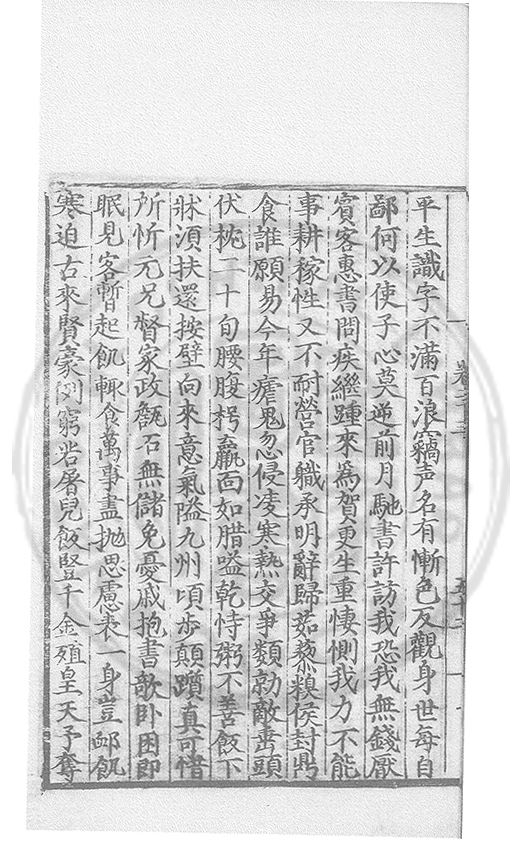 平生識字不滿百浪竊声名有慚色反觀身世每自
鄙何以使子心莫逆前月馳書許訪我恐我無錢厭
賓客惠書問疾繼踵來為賀更生重悽惻我力不能
事耕稼性又不耐營官軄承明辭歸茹藜糗侯封鼎
食誰願易今年瘧鬼忽侵凌寒熱交爭類勍敵畵頭
伏枕二十旬腰腹枵羸面如腊嗌乾恃粥不善飯下
牀湏扶還按壁向來意氣隘九州頃步顛躓真可惜
所忻元兄督家政甔石無儲免憂戚抱書欹卧困即
眠見客暫起飢輒食萬事盡抛思慮表一身豈邮飢
寒迫古來賢豪例窮若屠兒飯豎千金殖皇天予奪
卷二三